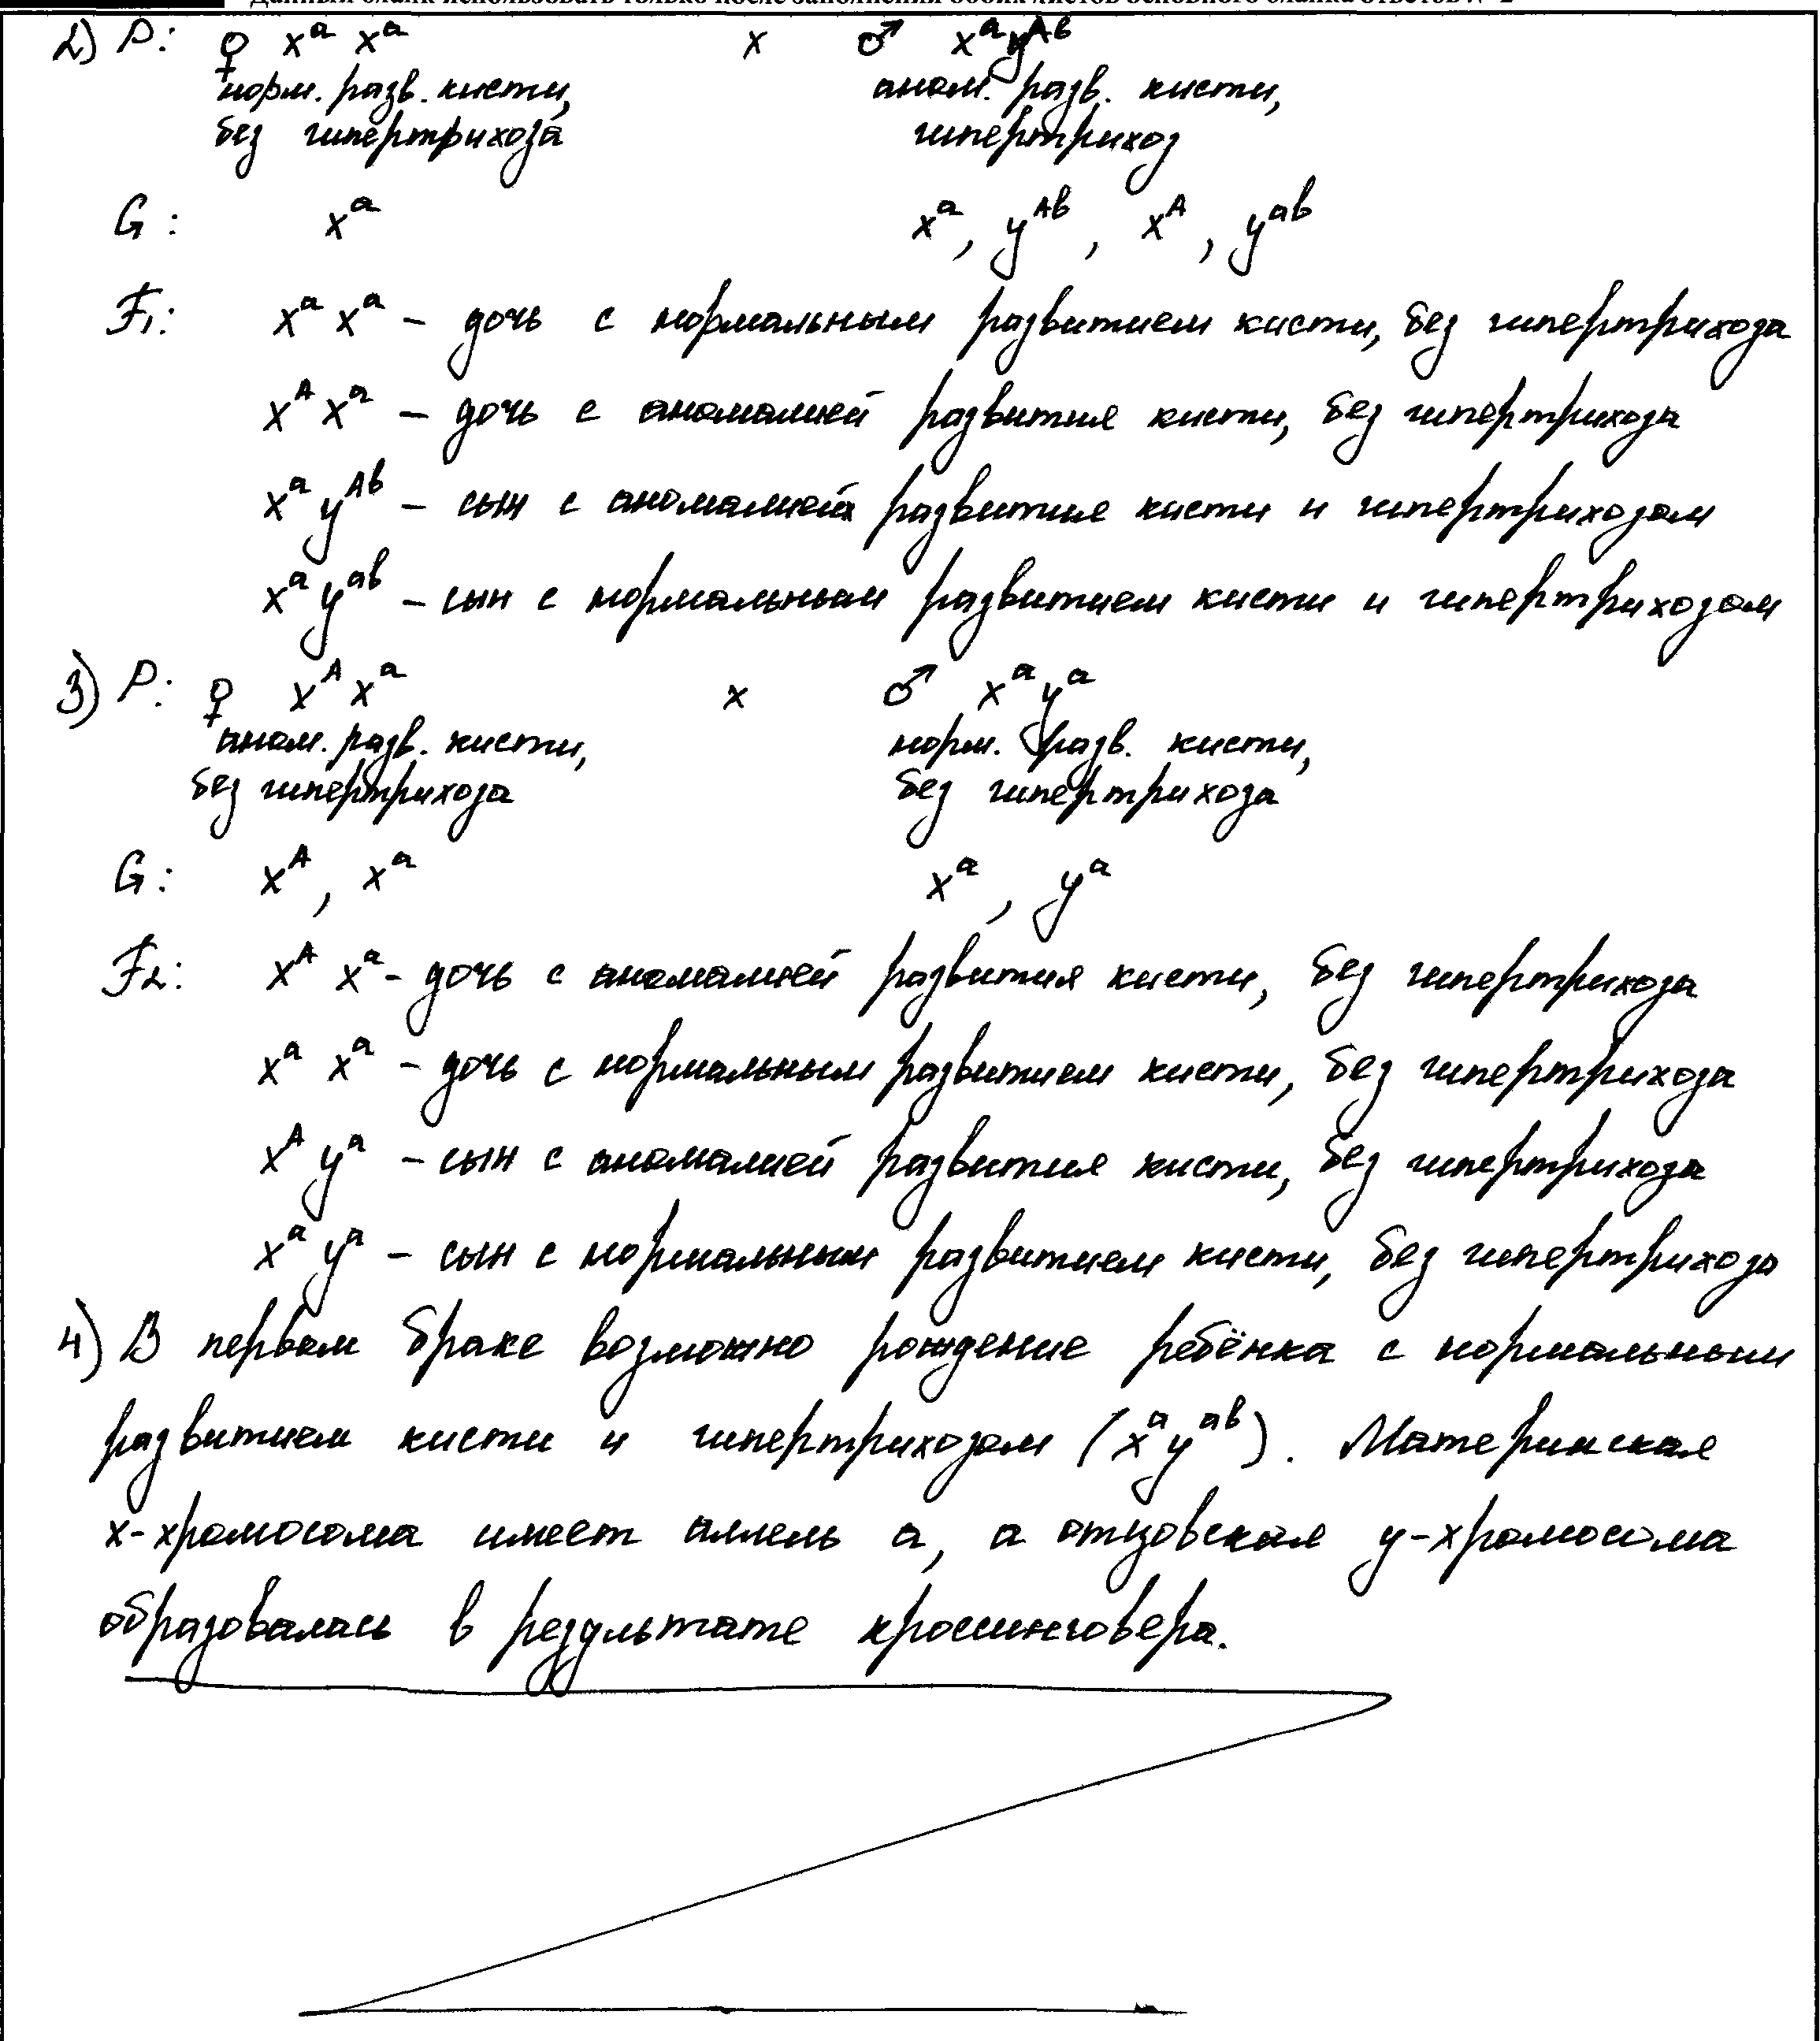 2) P: ♀ xᵃ xᵃ x ♂ xᵃyᴬᵇ
норм. разв. кисти, аном. разв. кисти,
без гипертрихоза гипертрихоз
G: xᵃ xᵃ, yᴬᵇ, xᴬ, yᵃᵇ
F₁: xᵃ xᵃ – дочь с нормальным развитием кисти, без гипертрихоза
xᴬ xᵃ – дочь с аномалией развития кисти, без гипертрихоза
xᵃ yᴬᵇ – сын с аномалией развития кисти и гипертрихозом
xᵃ yᵃᵇ – сын с нормальным развитием кисти и гипертрихозом
3) P: ♀ xᴬ xᵃ x ♂ xᵃ yᵃ
аном. разв. кисти, норм. разв. кисти,
без гипертрихоза без гипертрихоза
G: xᴬ, xᵃ xᵃ, yᵃ
F₂: xᴬ xᵃ - дочь с аномалией развития кисти, без гипертрихоза
xᵃ xᵃ – дочь с нормальным развитием кисти, без гипертрихоза
xᴬ yᵃ – сын с аномалией развития кисти, без гипертрихоза
xᵃ yᵃ – сын с нормальным развитием кисти, без гипертрихоза
4) В первом браке возможно рождение ребёнка с нормальным
развитием кисти и гипертрихозом (xᵃyᵃᵇ). Материнская
х-хромосома имеет аллель а, а отцовская у-хромосома
образовалась в результате кроссинговера.